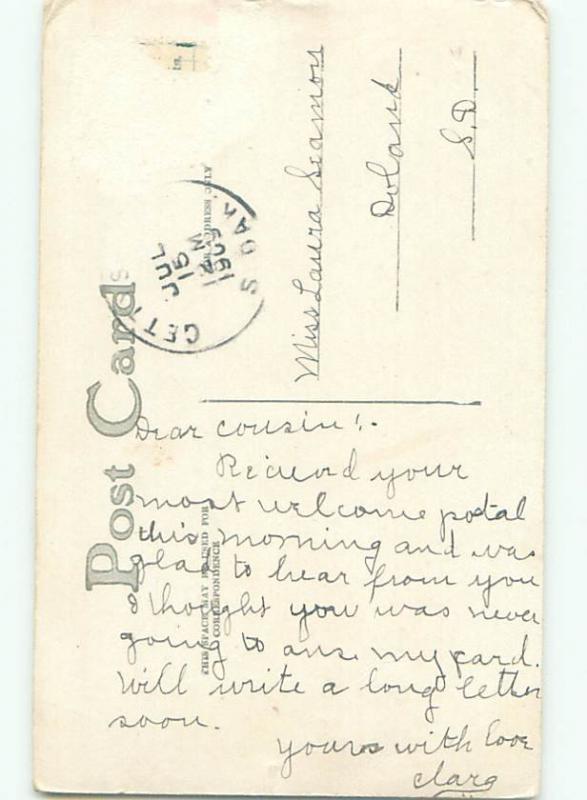 Post Card
THIS SPACE MAY BE USED FOR
CORRESPONDENCE
ADDRESS ONLY
GETTY
JUL
15
M
1909
S DAK
Miss Laura Seamon
Doland
S.D.
Dear cousin!.
Recieved your
most welcome postal
this morning and was
glad to hear from you
I thought you was never
going to ans. my card.
Will write a long letter
soon.
yours with love
Clara